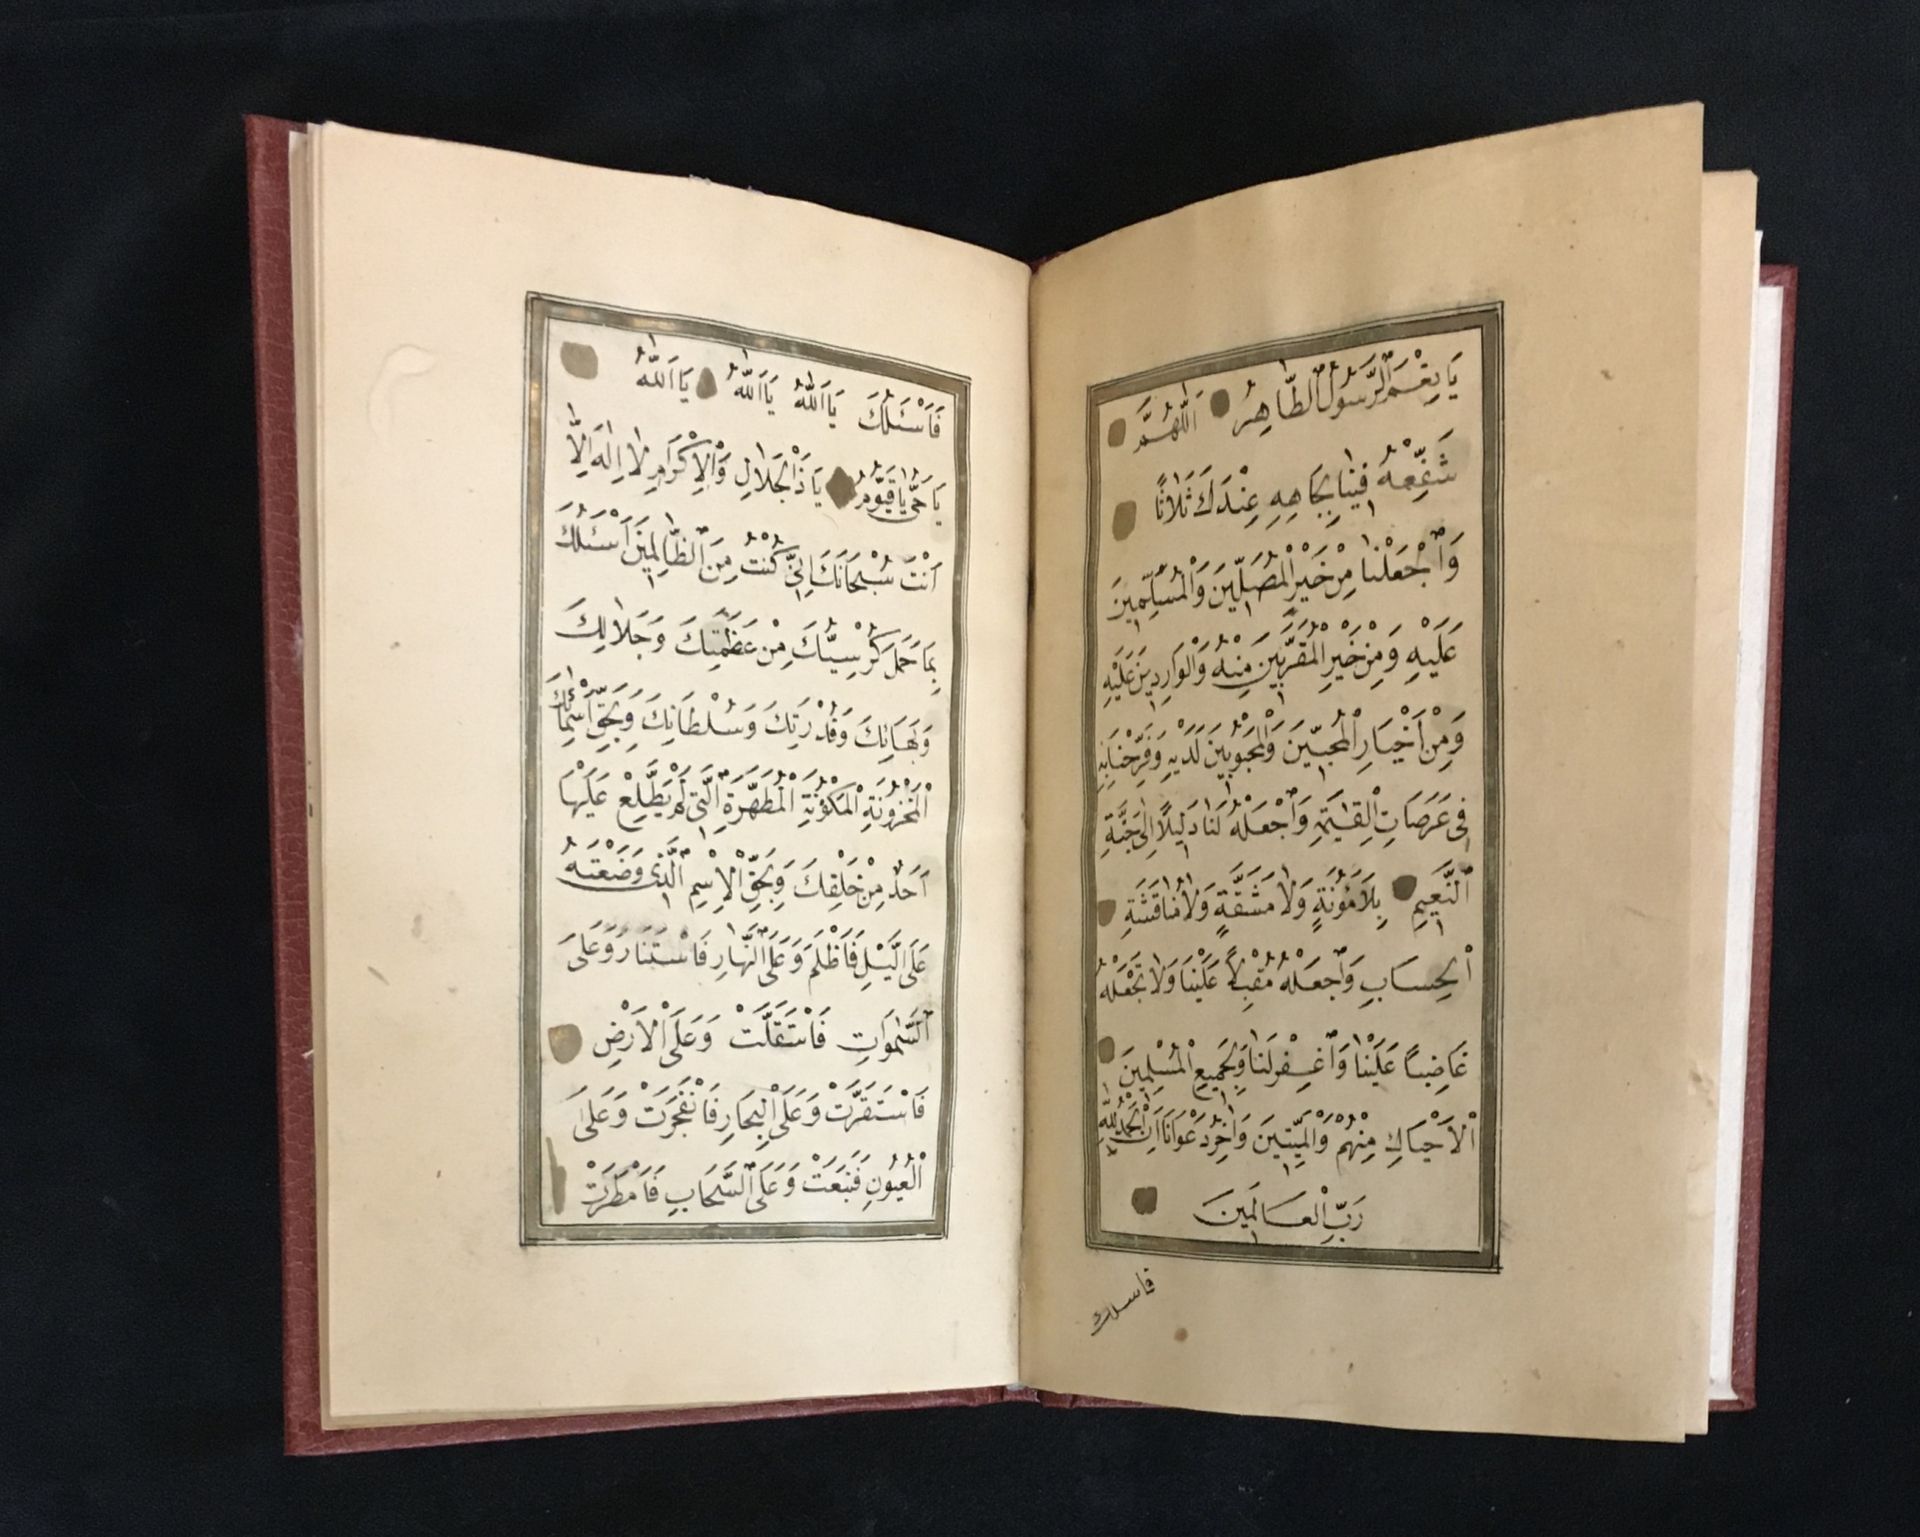 يَا نِعْمَ ٱلرَّسُولُ ٱلطَّاهِرُ اَللّٰهُمَّ
شَفِّعْهُ فِينَا بِجَاهِهِ عِنْدَكَ ثَلَاثًا
وَٱجْعَلْنَا مِنْ خَيْرِ الْمُصَلِّينَ وَالْمُسَلِّمِينَ
عَلَيْهِ وَمِنْ خَيْرِ الْمُقَرَّبِينَ مِنْهُ وَالْوَارِدِينَ عَلَيْهِ
وَمِنْ اَخْيَارِ الْمُحِبِّينَ وَالْمَحْبُوبِينَ لَدَيْهِ وَفَرِّحْنَا بِهِ
فِى عَرَصَاتِ الْقِيٰمَةِ وَٱجْعَلْهُ لَنَا دَلِيلًا اِلٰى جَنَّةِ
ٱلنَّعِيمِ بِلَا مَؤُنَةٍ وَلَا مَشَقَّةٍ وَلَا مُنَاقَشَةِ
الْحِسَابِ وَٱجْعَلْهُ مُقْبِلًا عَلَيْنَا وَلَا تَجْعَلْهُ
غَاضِبًا عَلَيْنَا وَٱغْفِرْ لَنَا وَلِجَمِيعِ الْمُسْلِمِينَ
الْاَحْيَاءِ مِنْهُمْ وَالْمَيِّتِينَ وَاٰخِرُ دَعْوَانَا اَنِ الْحَمْدُ لِلّٰهِ
رَبِّ الْعَالَمِينَ
فاسئلك
فَاَسْئَلُكَ يَا اَللّٰهُ يَا اَللّٰهُ يَا اَللّٰهُ
يَا حَىُّ يَا قَيُّومُ يَا ذَا الْجَلَالِ وَالْاِكْرَامِ لَا اِلٰهَ اِلَّا
اَنْتَ سُبْحَانَكَ اِنِّى كُنْتُ مِنَ ٱلظَّالِمِينَ اَسْئَلُكَ
بِمَا حَمَلَ كُرْسِيُّكَ مِنْ عَظَمَتِكَ وَجَلَالِكَ
وَبَهَائِكَ وَقُدْرَتِكَ وَسُلْطَانِكَ وَبِحَقِّ اَسْمَائِكَ
الْمَخْزُونَةِ الْمَكْنُونَةِ الْمُطَهَّرَةِ ٱلَّتِى لَمْ يَطَّلِعْ عَلَيْهَا
اَحَدٌ مِنْ خَلْقِكَ وَبِحَقِّ الْاِسْمِ ٱلَّذِى وَضَعْتَهُ
عَلَى الَّيْلِ فَاَظْلَمَ وَعَلَى ٱلنَّهَارِ فَاسْتَنَارَ وَعَلَى
ٱلسَّمٰوَاتِ فَاسْتَقَلَّتْ وَعَلَى الْاَرْضِ
فَاسْتَقَرَّتْ وَعَلَى الْبِحَارِ فَانْفَجَرَتْ وَعَلَى
الْعُيُونِ فَنَبَعَتْ وَعَلَى ٱلسَّحَابِ فَاَمْطَرَتْ